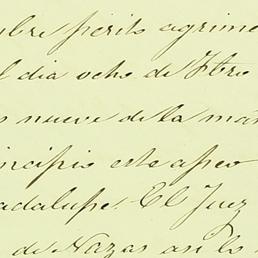 bre perito agrime
l dia ocho de Sbre
s nueve de la ma
incipio este apeo
adalupe. El Juez
de Nazas asi lo